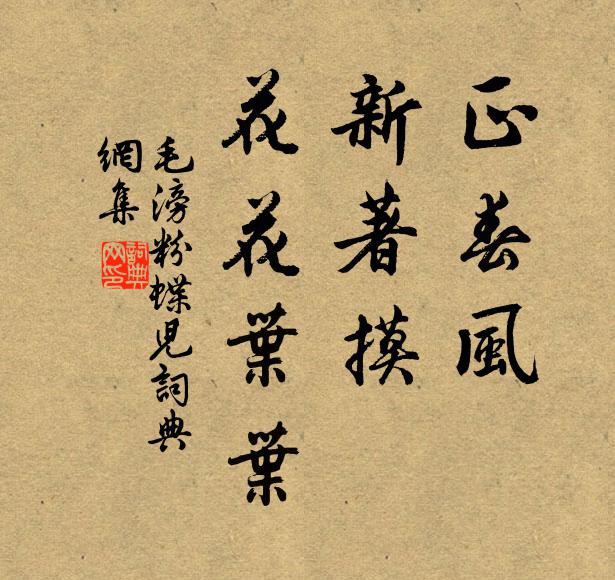 正春風
新著摸
花花葉葉
毛滂粉蝶見詞典
網集
詞典
网印